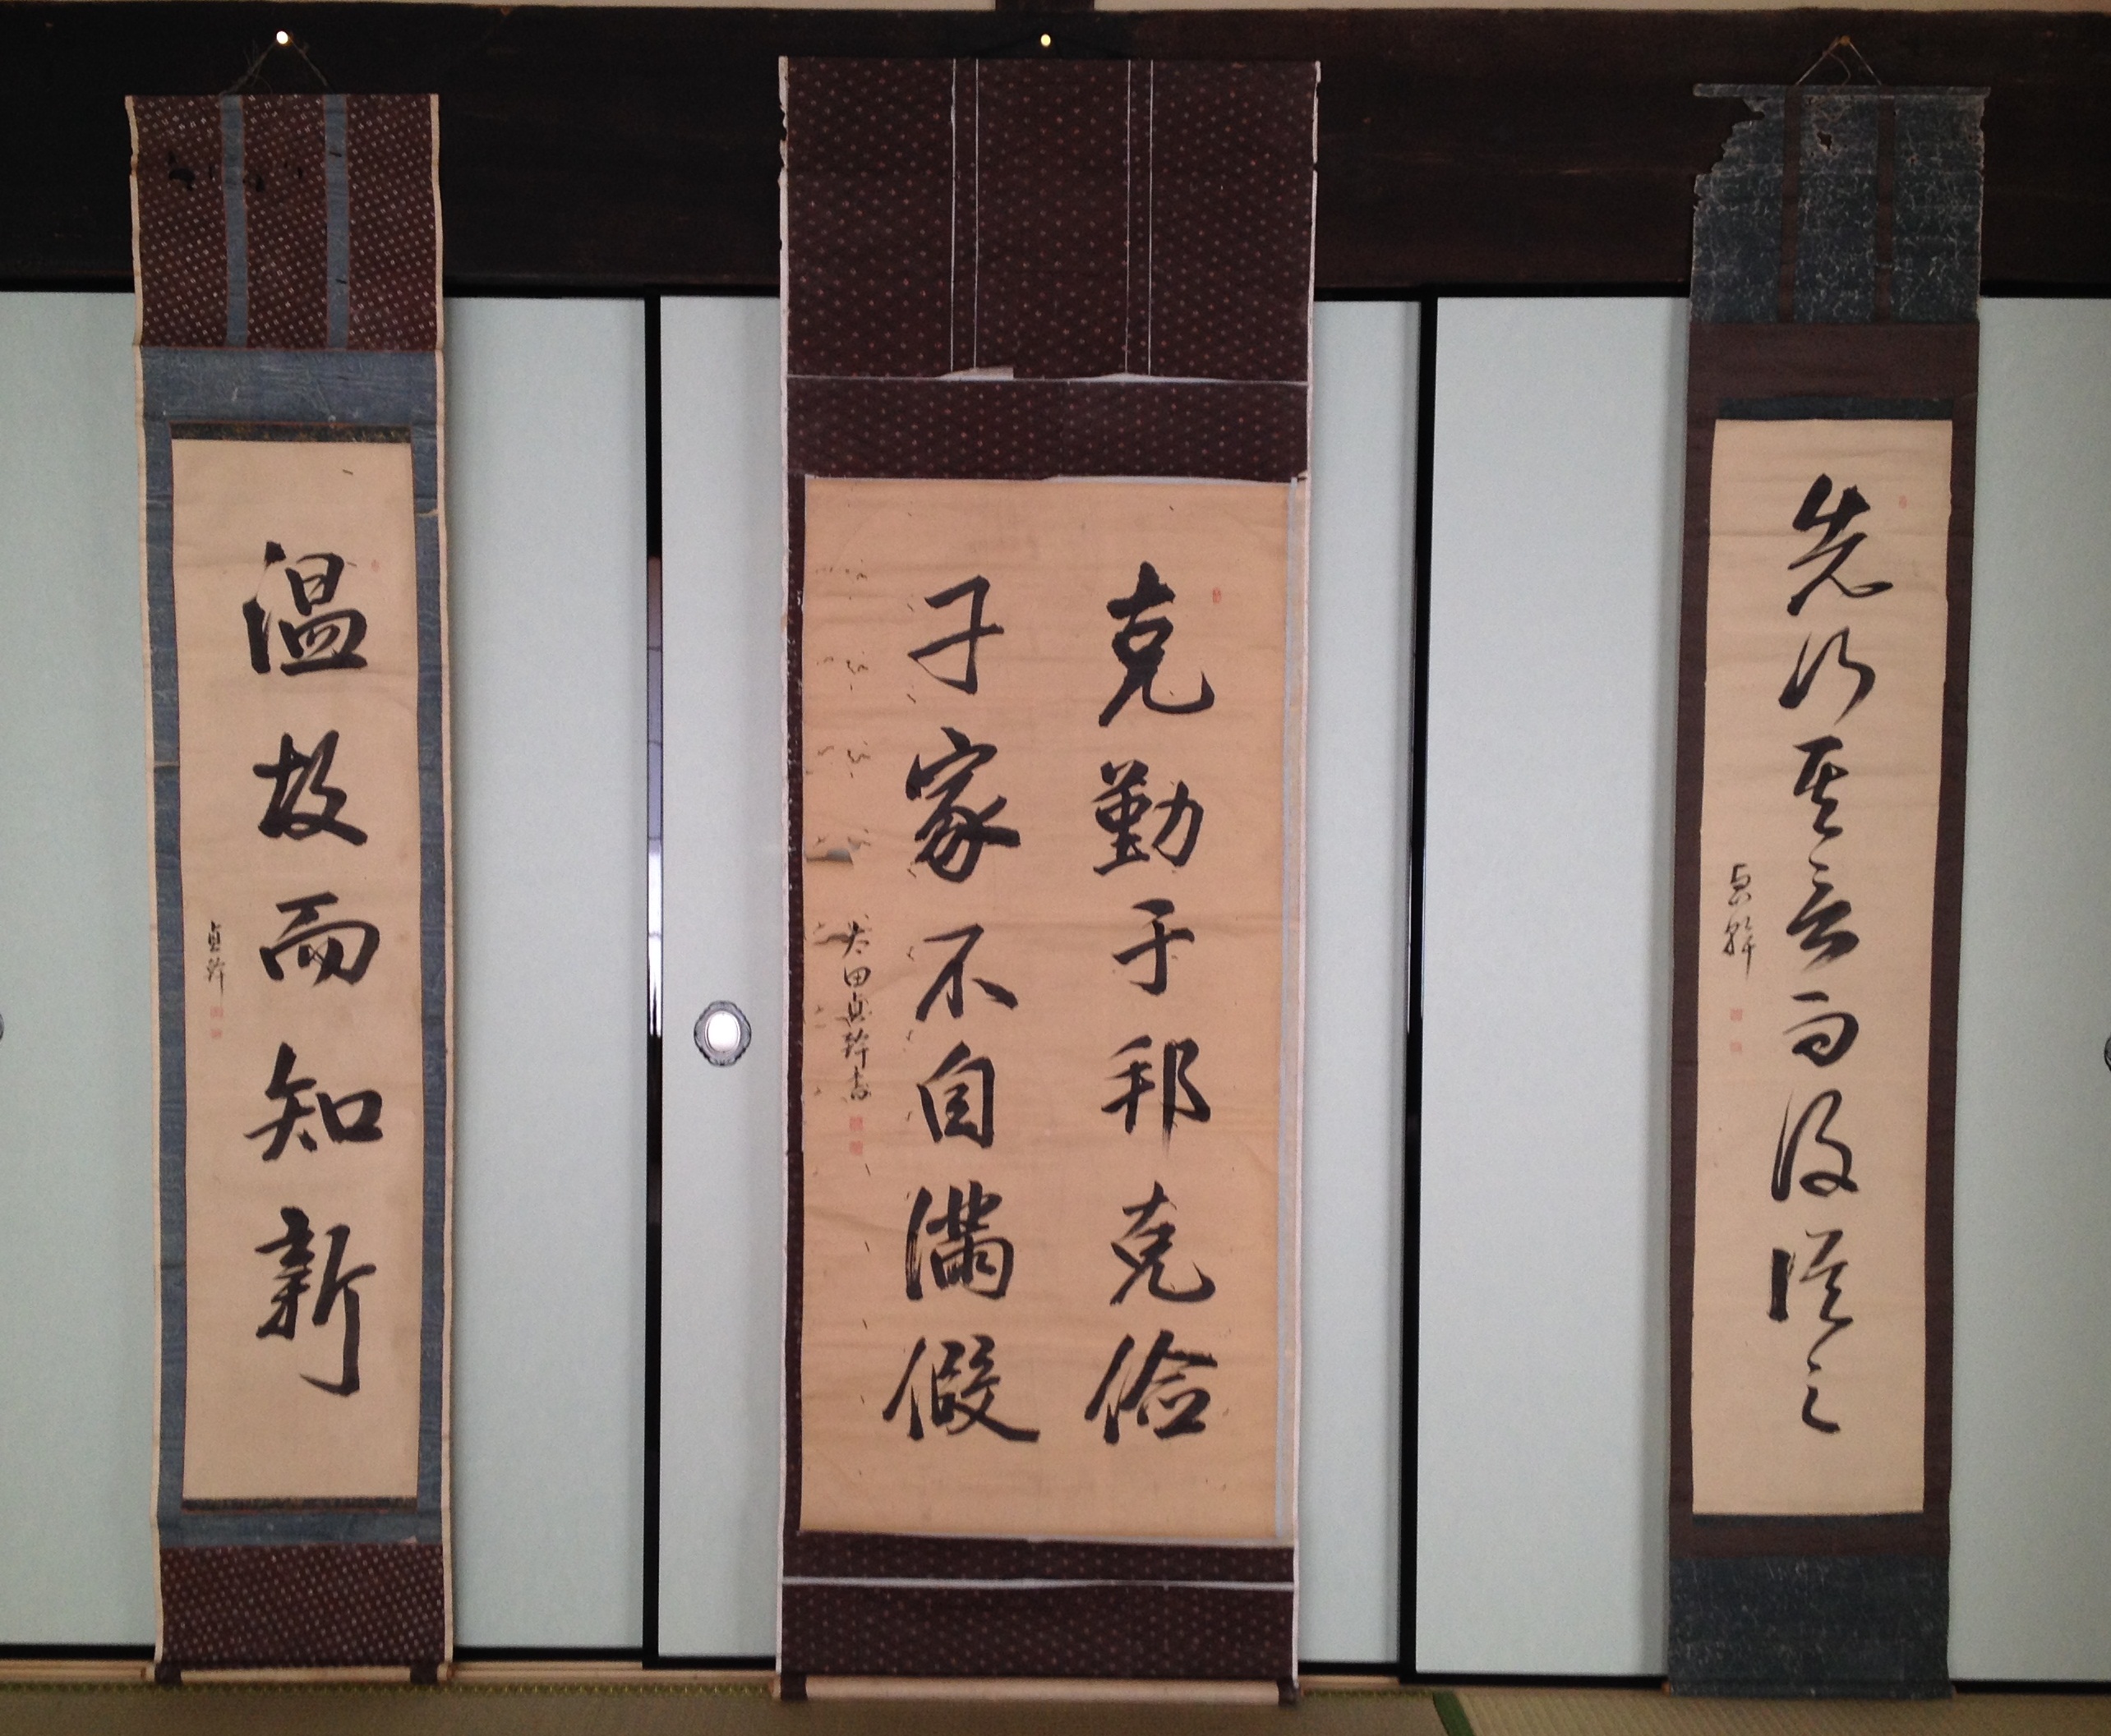 先行其言而後從之
貞幹
克勤于邦克儉
于家不自滿假
太田貞幹書
温故而知新
貞幹